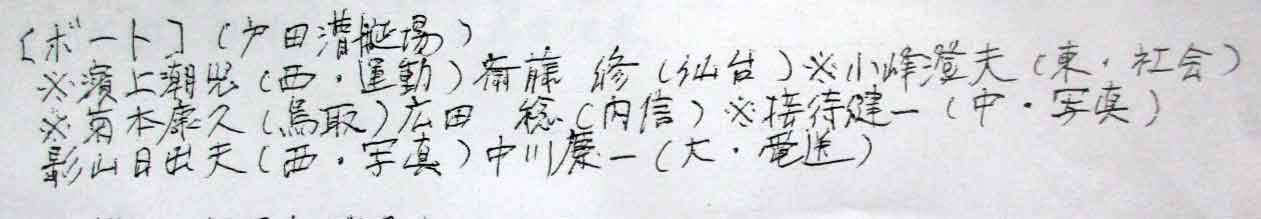 〔ボート〕(戸田漕艇場)
※濱上潮児(西・運動)斎藤 修(仙台)※小峰澄夫(東・社会)
※菊本康久(鳥取)広田 総(内信)※接待健一(中・写真)
影山日出夫(西・写真)中川慶一(大・電送)